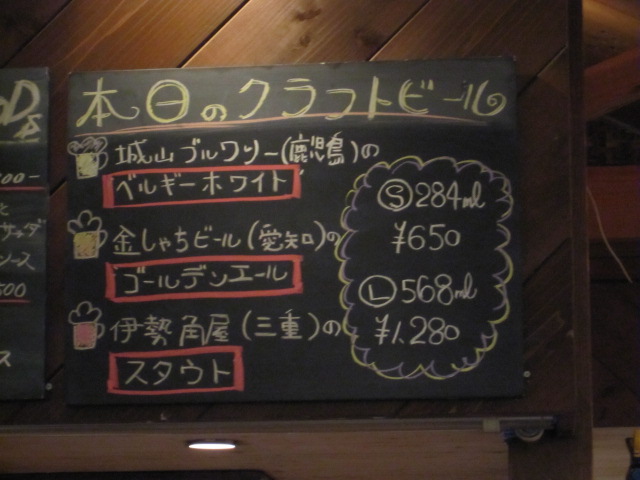 本日のクラフトビール
城山ブルワリー(鹿児島)の
ベルギーホワイト
金しゃちビール(愛知)の
ゴールデンエール
伊勢角屋(三重)の
スタウト
Ⓢ284ml
¥650
Ⓛ568ml
¥1,280